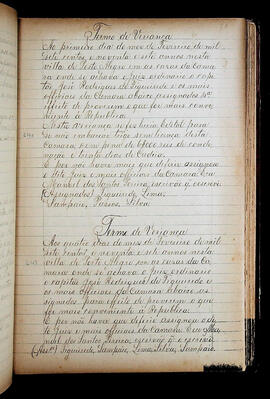 Termo de Veriança
Ao primeiro dia do mez de Fevereiro de mil
sete centos e noventa e sete annos nesta
villa de Porto Alegre em as cazas da Cama
ra onde se achava o juiz ordinario o capi
tão José Rodrigues de Figueiredo e os mais
officiaes da Camara abaixo assignados p.ª
effeito de proverem o que for mais conve
niente á Republica.
Nesta veriança se fez hum Edital para
se não embarcar trigo sem licença desta
Camara com pena de 6000 reis de conde
nação e trinta dias de Cadeia.
E por não haver mais que deferir assignou
o dito juiz e mais officiaes da Camara Eu
Manoel dos Santos escrivão q. escrevi
(Assignados) Figueiredo, Lima,
Sampaio, Passos, Silva
Termo de Veriança
Aos quatro dias do mez de Fevereiro de mil
sete centos e noventa e sete annos nesta
villa de Porto Alegre em as cazas da Ca
mara onde se achava o juiz ordinario
o capitão José Rodrigues de Figueiredo e
os mais officiaes da Camara abaixo as
signados para effeito de proverem o que
for mais conveniente á Republica.
E por não haver que deferir assignou o di
to juiz e mais officiaes da Camara Eu Ma
noel dos Santos escrivão q. o escrevi
(Ass.) Figueiredo, Sampaio, Lima, Silva, Sampaio